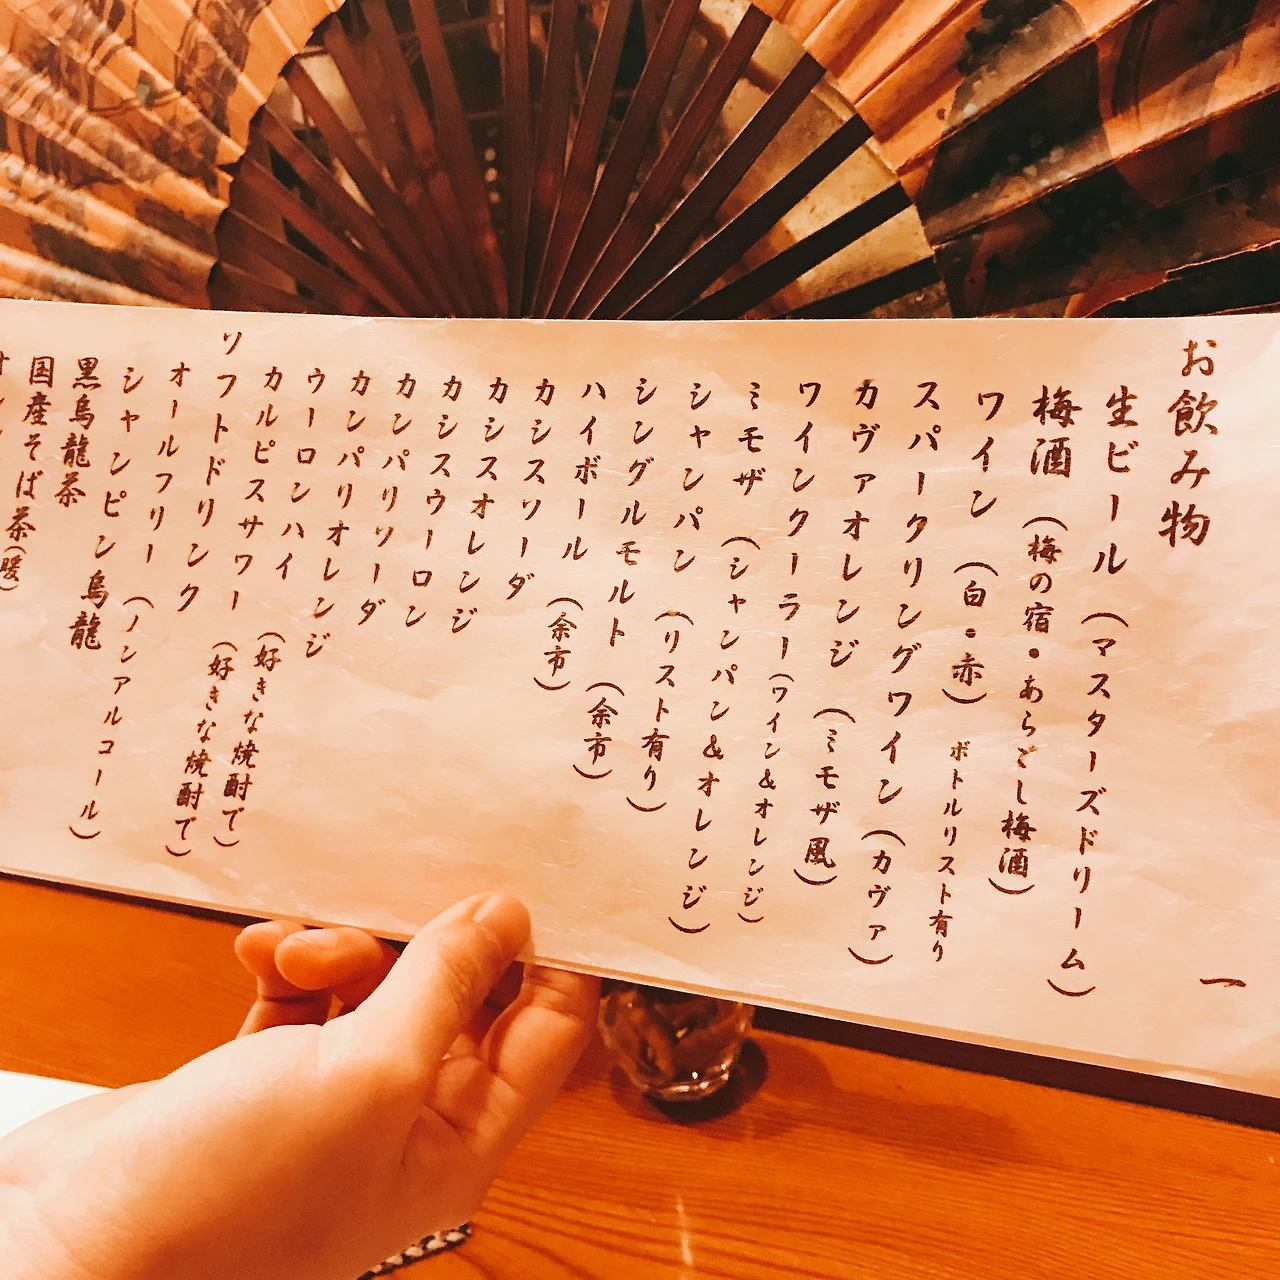 お飲み物 一
生ビール（マスターズドリーム）
梅酒（梅の宿・あらごし梅酒）
ワイン（白・赤）ボトルリスト有り
スパータリングワイン（カヴァ）
カヴァオレンジ（ミモザ風）
ワインクーラー（ワイン&オレンジ）
ミモザ（シャンパン&オレンジ）
シャンパン（リスト有り）
シングルモルト（余市）
ハイボール（余市）
カシスソーダ
カシスオレンジ
カシスウーロン
カンパリソーダ
カンパリオレンジ
ウーロンハイ（好きな焼酎で）
カルピスサワー（好きな焼酎で）
ソフトドリンク
オールフリー（ノンアルコール）
シャンピン烏龍
黒烏龍茶
国産そば茶（暖）